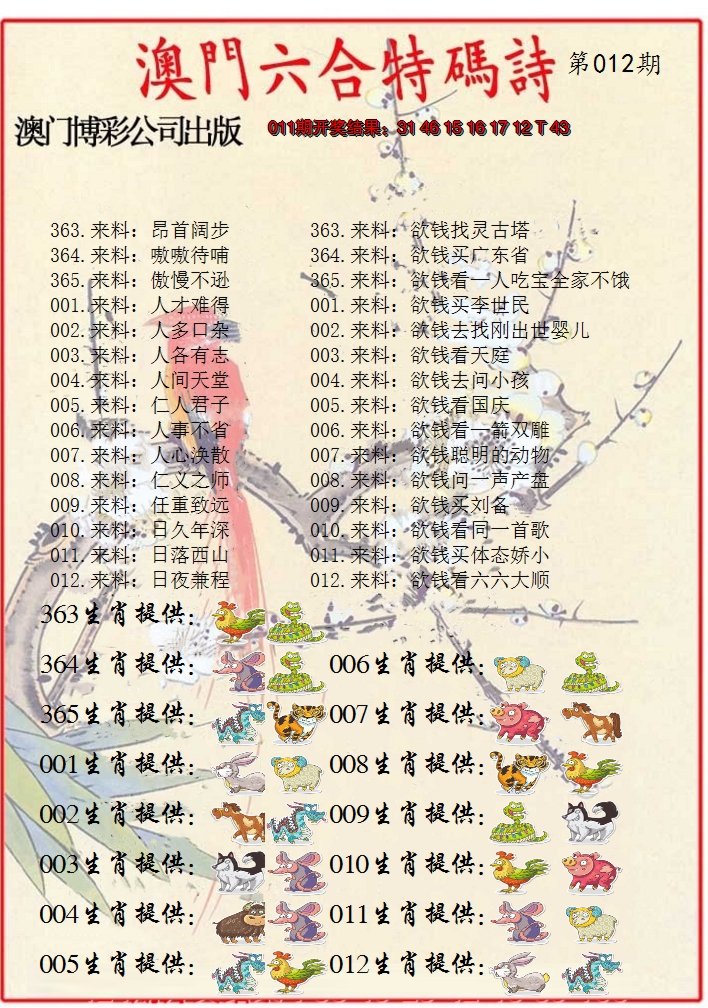 澳門六合特碼詩 第012期
澳门博彩公司出版 011期开奖结果：31 46 15 16 17 12 T 43
363.来料：昂首阔步 363.来料：欲钱找灵古塔
364.来料：嗷嗷待哺 364.来料：欲钱买广东省
365.来料：傲慢不逊 365.来料：欲钱看一人吃宝全家不饿
001.来料：人才难得 001.来料：欲钱买李世民
002.来料：人多口杂 002.来料：欲钱去找刚出世婴儿
003.来料：人各有志 003.来料：欲钱看天庭
004.来料：人间天堂 004.来料：欲钱去问小孩
005.来料：仁人君子 005.来料：欲钱看国庆
006.来料：人事不省 006.来料：欲钱看一箭双雕
007.来料：人心涣散 007.来料：欲钱聪明的动物
008.来料：仁义之师 008.来料：欲钱问一声产盘
009.来料：任重致远 009.来料：欲钱买刘备
010.来料：日久年深 010.来料：欲钱看同一首歌
011.来料：日落西山 011.来料：欲钱买体态娇小
012.来料：日夜兼程 012.来料：欲钱看六六大顺
363生肖提供：
364生肖提供： 006生肖提供：
365生肖提供： 007生肖提供：
001生肖提供： 008生肖提供：
002生肖提供： 009生肖提供：
003生肖提供： 010生肖提供：
004生肖提供： 011生肖提供：
005生肖提供： 012生肖提供：